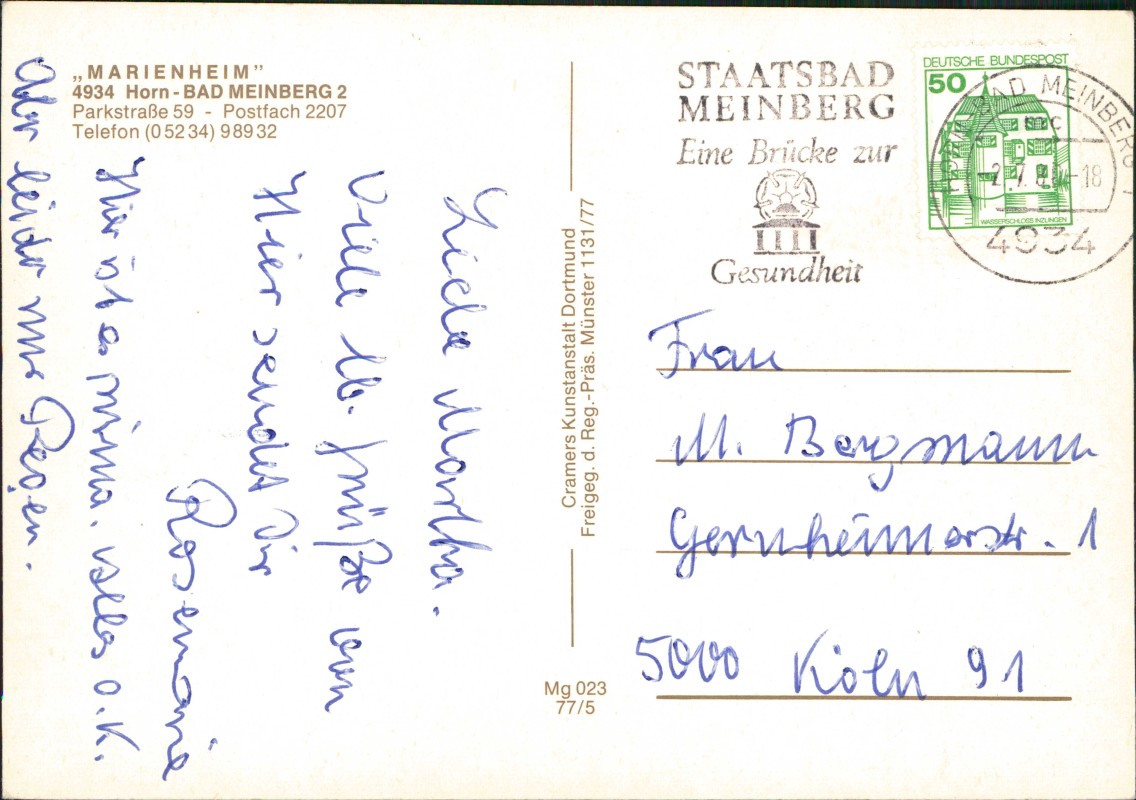 „MARIENHEIM”
4934 Horn - BAD MEINBERG 2
Parkstraße 59 - Postfach 2207
Telefon (0 52 34) 9 89 32
Liebe Martha.
Viele lb. Grüße von
Hier sendet Dir
Rosemarie
Hier ist es prima. Alles o.K.
Aber leider nur Regen.
Cramers Kunstanstalt Dortmund
Freigeg. d. Reg.-Präs. Münster 1131/77
Mg 023
77/5
STAATSBAD
MEINBERG
Eine Brücke zur
Gesundheit
DEUTSCHE BUNDESPOST
50
WASSERSCHLOSS INZLINGEN
HORN-BAD MEINBERG 1
mc
-18
4934
Frau
M. Bergmann
Gernheimerstr. 1
5000 Köln 91